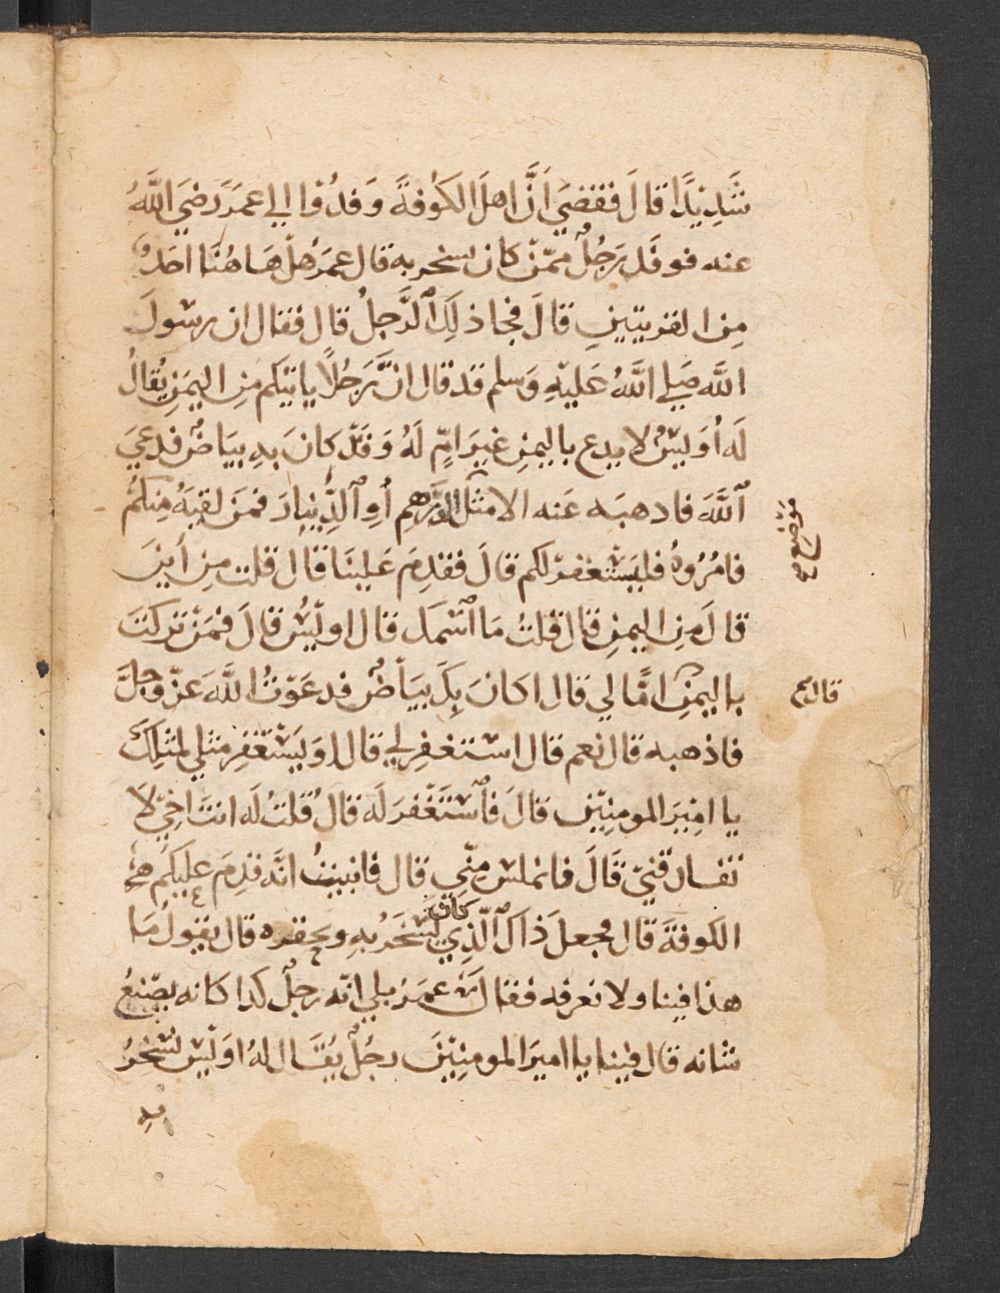 شَدِيدًا قالَ فقضيَ اَنَّ اهلَ الكُوفةَ وَفدُوا الي عمرَ رَضيَ اللَّهُ
عنه فوفَد رَجُلٌ ممّن كان يسخر به قال عمَرُ هلْ هَاهُنَا احَدٌ
مِن القرنيينِ قالَ فجا ذلِكَ ٱلرَّجلُ قال فقال ان رسُولَ
اللَّه صَلي اللَّهُ عَليْهِ وَسلم قد قال انَّ رَجُلًا ياتيكم مِن اليمَنِ يُقالُ
لَه اُوَيسٌ لا يدع باليمنِ غيرَ امٍّ لَهُ وَقَد كانَ بهِ بيَاضٌ فدعيَ
ٱللَّهَ فاذهبَه عَنه الا مثْل الدّرْهمِ أوِ ٱلدِّينارَ فمَن لقيَهُ مِنكُمْ
فامُرُوهُ فليَسْتَغفرْ لكم قالَ فقدِمَ عَلينَا قال قلت مِن أينَ
قالَ مِن اليمنِ قال قلتُ مَا اسْمك قال اويْسٌ قالَ فمَنْ تركتَ
باليمنِ امًّا لي قال اكانَ بِكَ بيَاضٌ فدعَوْتُ اللَّهَ عَزّ وجلَّ
فاذهبه قال نعم قال اسْتغفِر لي قال اوَيَسْتَغفِر مثلي لمثلِكَ
يا امِيرَ المومنِيْنِ قالَ فٱسْتَغْفرَ لَه قالَ قلتُ لَه انتَ اخِيْ لَا
تفارقنيْ قَالَ فانملسَ منِّي قال فانبيْتُ انَّه قدِمَ عليكُم
الكوفةَ قال فجعلَ ذاكَ ٱلّذِي كان يَسْخَرُ بهِ ويحقره قال يقولُ مَا
هذا فينا ولا نعرفه فقال عمَرُ بلي انّه رجلٌ كذا كانه يصْنعُ
شانه قال فيْنا يا اميرَ المومنِيْنَ رجُلٌ يُقَال لهُ اوَيْسٌ نسْخرُ
به
موْضع
قال